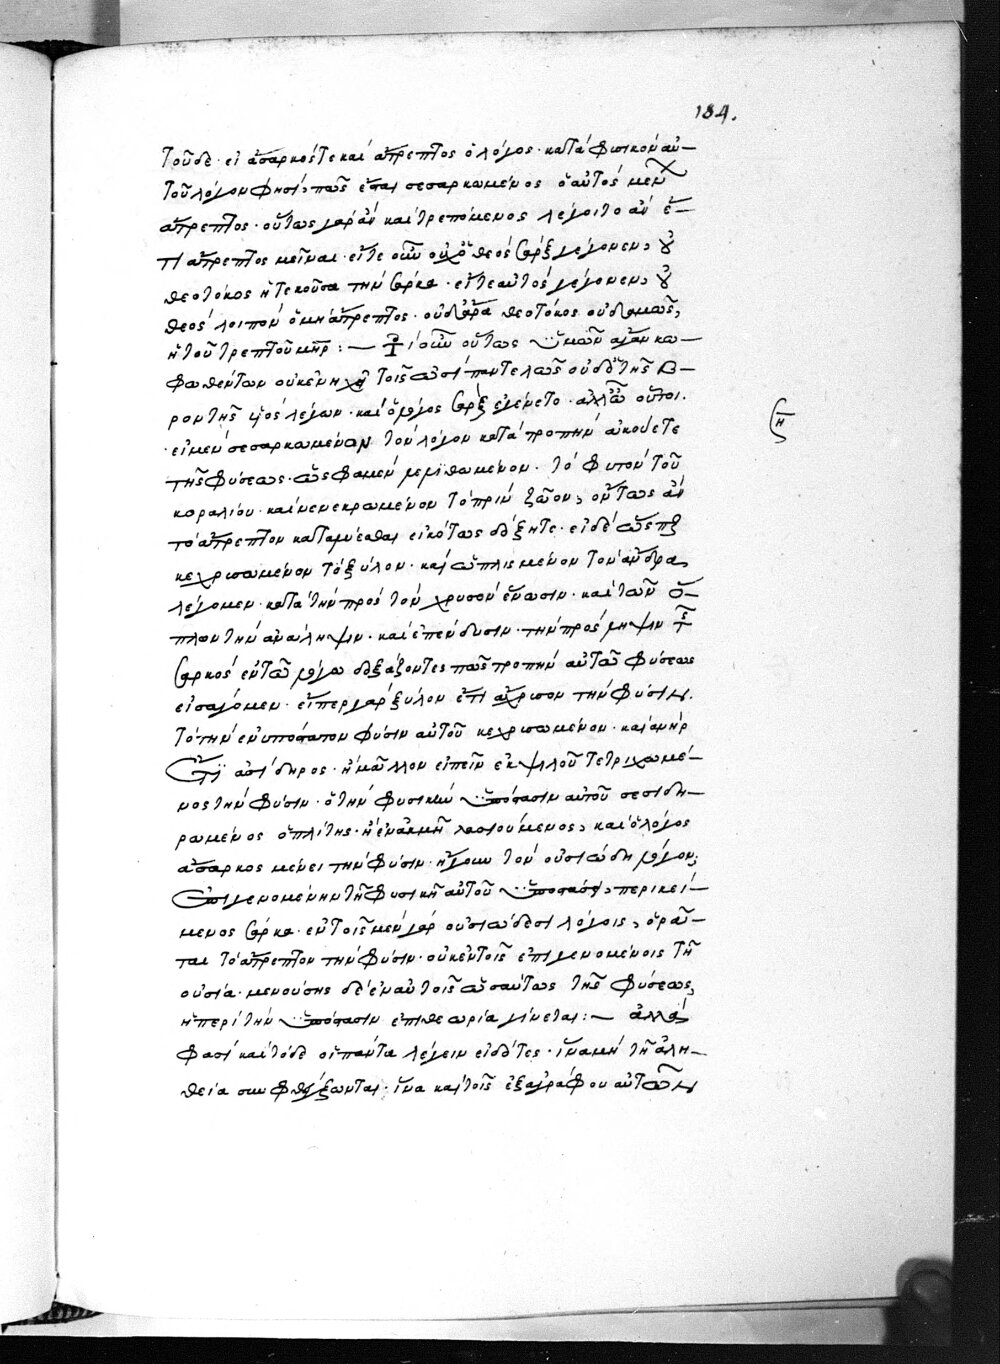 184.
τοῦδε· εἰ ἄσαρκός τε καὶ ἄτρεπτος ὁ λόγος· κατὰ φυσικὸν αὐ–
τοῦ λόγον φησί, πῶς ἔσται σεσαρκωμένος ὁ αὐτὸς μὲν
ἄτρεπτος· οὕτως γὰρ ἂν καὶ τρεπόμενος λέγοιτο ἂν ἔ–
τι ἄτρεπτος μεῖναι· εἴτε οὖν οὐχ ὁ θεὸς σὰρξ γέγονεν, οὐ
θεοτόκος ἡ τεκοῦσα τὴν σάρκα· εἴτε αὐτὸς γέγονεν, οὐ
θεὸς λοιπὸν ὁ μὴ ἄτρεπτος· οὐδ' ἄρα θεοτόκος οὐδαμῶς,
ἡ τοῦ τρεπτοῦ μῆρ :– τί οὖν οὕτως ὑμῶν ἄγαν κω–
φωθέντων οὐκ ἐνηχεῖ τοῖς ὠσὶ παντελῶς οὐδὲ τῆς β–
ροντῆς ὑιὸς λέγων· καὶ ὁ λόγος σὰρξ ἐγένετο· ἀλλ' ὦ οὗτοι·
(η
· εἰ μὲν σεσαρκωμένον τὸν λόγον κατὰ τροπὴν ἀκούετε
τῆς φύσεως· ὥς φαμεν λελιθωμένον· τὸ φυτὸν τοῦ
κοραλίου· καὶ νενεκρωμένον τὸ πρὶν ζῶον, ὄντως ἂν
τὸ ἄτρεπτον εἰκότως εἰ δὲ ὥσπερ
κεχρυσωμένον τὸ ξύλον· καὶ ὡπλισμένον τὸν ἄνδρα,
λέγομεν· κατὰ τὴν πρὸς τὸν χρυσὸν ἕνωσιν· καὶ τῶν ὅ–
πλων τὴν ἀνάληψιν· καὶ ἐπένδυσιν· τὴν πρόσληψιν τῆς
σαρκὸς ἐν τῷ λόγῳ δοξάζοντες πῶς τροπὴν αὐτῷ φύσεως
εἰσάγομεν· εἴπερ γὰρ ξύλον ἔτι ἄχρυσον τὴν φύσιν·
τὸ τὴν ἐνυπόστατον φύσιν αὐτοῦ κεχρυσωμένον· καὶ ἀνὴρ
ἔτι ἀσίδηρος· ἢ μᾶλλον εἰπεῖν ἐκ ψιλοῦ τετριχωμέ–
νος τὴν φύσιν· ὁ τὴν φυσικὴν ὑπόστασιν αὐτοῦ σεσιδη–
ρωμένος ὁπλίτης· ἢ ἐν ἀκμῇ λασιούμενος, καὶ ὁ λόγος
ἄσαρκος μένει τὴν φύσιν· ἤγουν τὸν οὐσιώδη λόγον,
ἐπιγενομένην τῇ φυσικῇ αὐτοῦ ὑποστάσει, περικεί–
μενος σάρκα· ἐν τοῖς μὲν γὰρ οὐσιώδεσι λόγοις, ὁρᾶ–
ται τὸ ἄτρεπτον τὴν φύσιν· οὐκ ἐν τοῖς ἐπιγενομένοις τῇ
οὐσίᾳ· μενούσης δὲ ἐν αὐτοῖς ὡσαύτως τῆς φύσεως,
ἡ περὶ τὴν ὑπόστασιν ἐπιθεωρία γίνεται :– ἀλλά
φασὶ καὶ τόδε οἱ πάντα λέγειν εἰδότες· ἵνα μὴ τῇ ἀλη–
θείᾳ συμφθέγξωνται· ἵνα καὶ τοῖς ἐξ ἀγράφου αὐτῶν